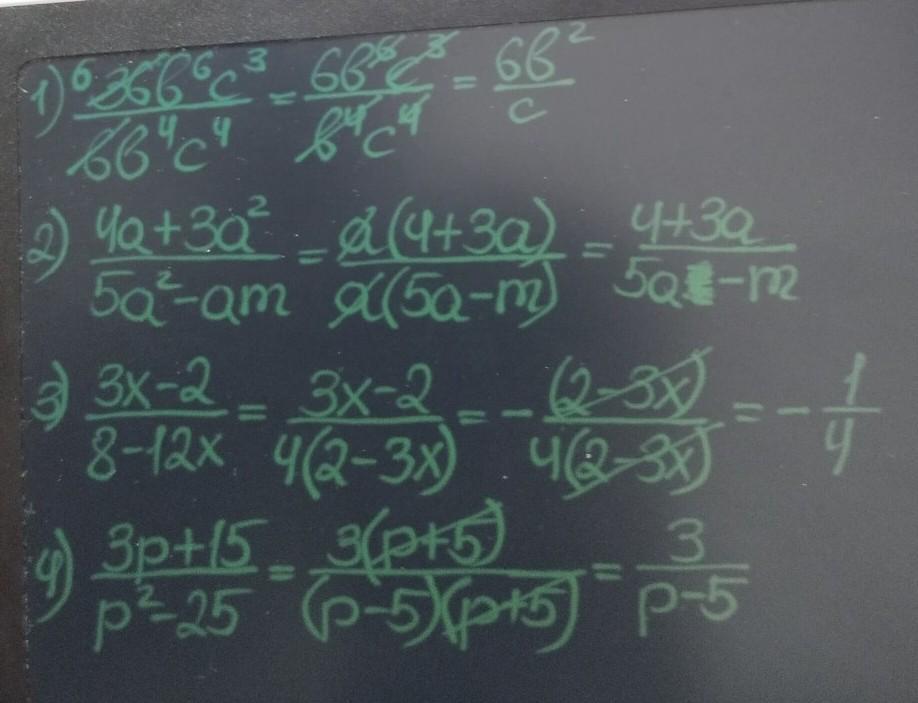 1) 6 36в⁶c³/6в⁴c⁴ = 6в⁶c³/в⁴c⁴ = 6в²/c
2) 4a+3a²/5a²-am = a(4+3a)/a(5a-m) = 4+3a/5a-m
3) 3x-2/8-12x = 3x-2/4(2-3x) = -(2-3x)/4(2-3x) = -1/4
4) 3p+15/p²-25 = 3(p+5)/(p-5)(p+5) = 3/p-5